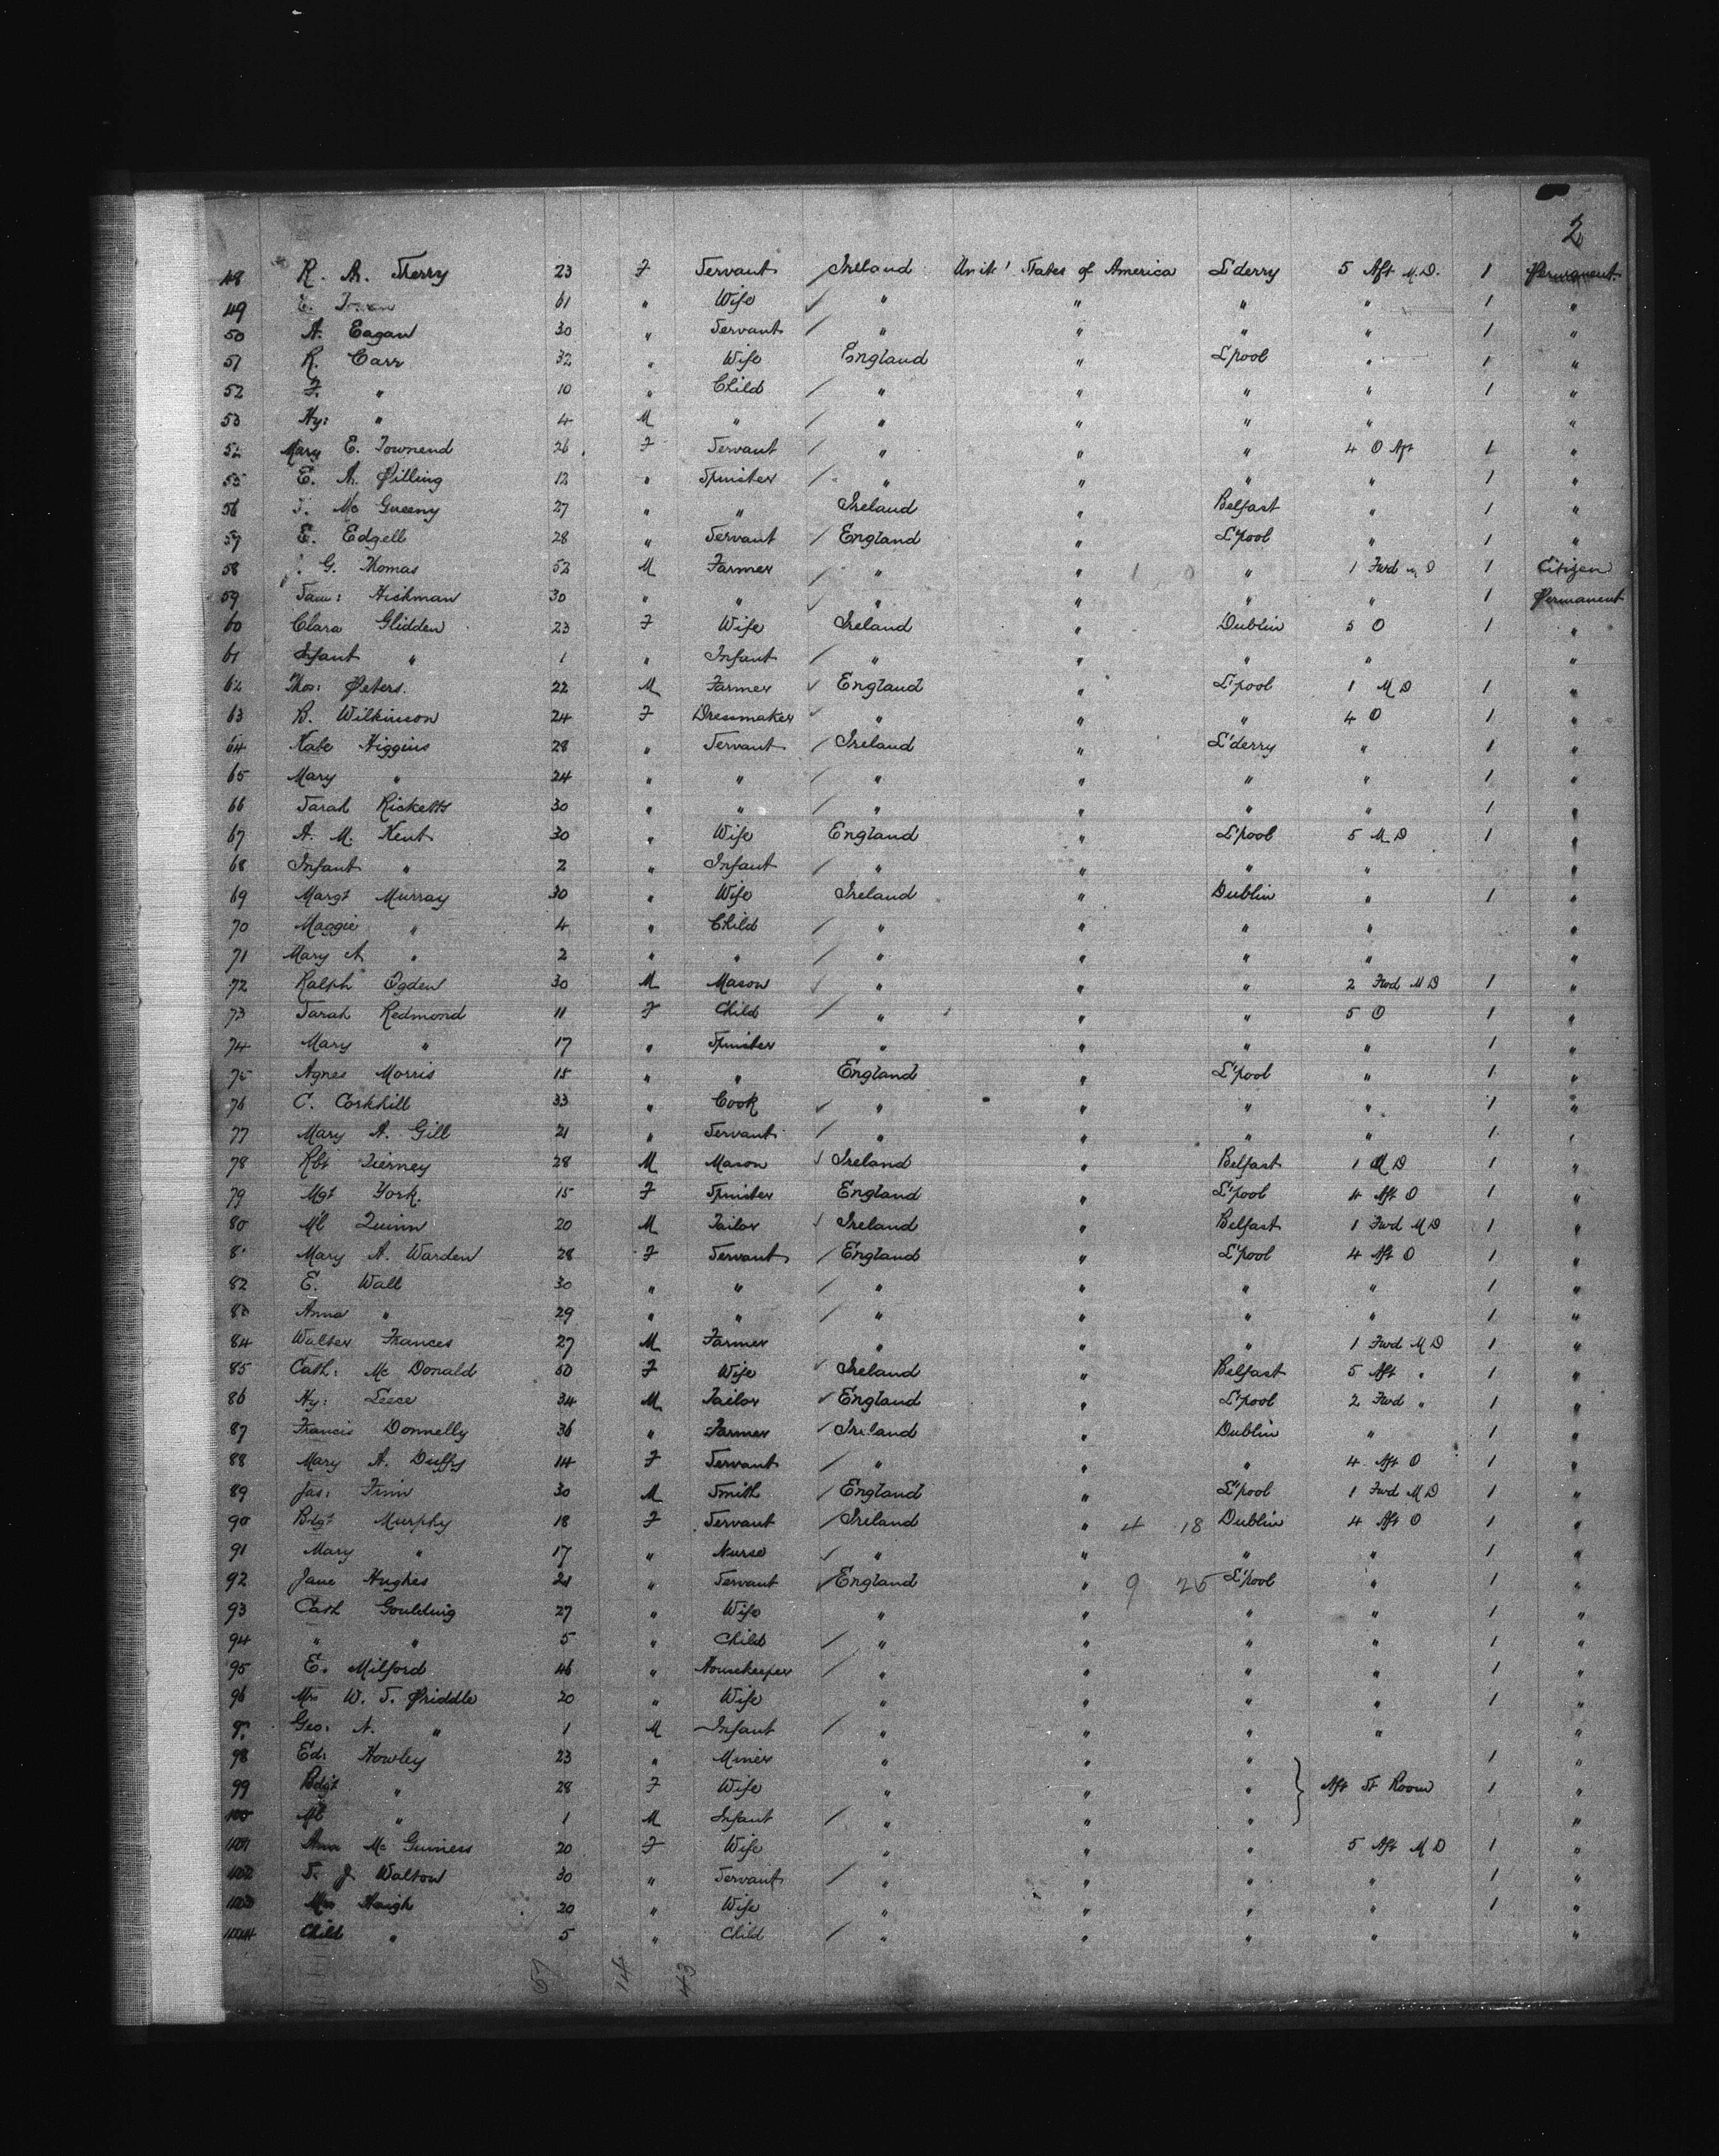 2
48 R. A. Sherry 23 F Servant Ireland Unit' States of America L'derry 5 Aft M.D. 1 Permanent
49 E. 61 " Wife " " " " 1 "
50 A. Eagan 30 " Servant " " " " 1 "
51 R. Carr 32 " Wife England " L'pool " 1 "
52 F. " 10 " Child " " " " 1 "
53 Hy: " 4 M " " " " " "
54 Mary E. Townend 26 F Servant " " " 4 O Aft 1 "
55 E. A. Pilling 12 " Spinster " " " " 1 "
56 Mc Gueeny 27 " " Ireland " Belfast " 1 "
57 E. Edgell 28 " Servant England " L'pool " 1 "
58 G. Thomas 52 M Farmer " " 1 0 " 1 Fwd M D 1 Citizen
59 Sam: Hickman 30 " " " " " " 1 Permanent
60 Clara Glidden 23 F Wife Ireland " Dublin 5 O 1 "
61 Infant " 1 " Infant " " " " "
62 Thos: Peters. 22 M Farmer England " L'pool 1 M D 1 "
63 B. Wilkinson 24 F Dressmaker " " " 4 O 1 "
64 Kate Higgins 28 " Servant Ireland " L'derry " 1 "
65 Mary " 24 " " " " " " 1 "
66 Sarah Ricketts 30 " " " " " " 1 "
67 A. M. Kent 30 " Wife England " L'pool 5 M D 1 "
68 Infant " 2 " Infant " " " " "
69 Margt Murray 30 " Wife Ireland " Dublin " 1 "
70 Maggie " 4 " Child " " " " "
71 Mary A " 2 " " " " " " "
72 Ralph Ogden 30 M Mason " " " 2 Fwd M D 1 "
73 Sarah Redmond 11 F Child " " " 5 O 1 "
74 Mary " 17 " Spinster " " " " 1 "
75 Agnes Morris 18 " " England " L'pool " 1 "
76 C. Corkhill 33 " Cook " " " " 1 "
77 Mary A. Gill 21 " Servant " " " " 1 "
78 Rbt Tierney 28 M Mason Ireland " Belfast 1 M D 1 "
79 Mgt York. 15 F Spinster England " L'pool 4 Aft O 1 "
80 Ml Quinn 20 M Tailor Ireland " Belfast 1 Fwd M D 1 "
8 Mary A. Warden 28 F Servant England " L'pool 4 Aft O 1 "
82 E. Wall 30 " " " " " " 1 "
83 Anna " 29 " " " " " " 1 "
84 Walter Frances 27 M Farmer " " " 1 Fwd M D 1 "
85 Cath: Mc Donald 60 F Wife Ireland " Belfast 5 Aft " 1 "
86 Hy: Leece 34 M Tailor England " L'pool 2 Fwd " 1 "
87 Francis Donnelly 36 " Farmer Ireland " Dublin " 1 "
88 Mary A. Duffy 14 F Servant " " " 4 Aft O 1 "
89 Jas: Finn 30 M Smith England " L'pool 1 Fwd M D 1 "
90 Bdgt Murphy 18 F Servant Ireland " 4 18 Dublin 4 Aft O 1 "
91 Mary " 17 " Nurse " " " " 1 "
92 Jane Hughes 21 " Servant England " 9 25 L'pool " 1 "
93 Cath Goulding 27 " Wife " " " " 1 "
94 " " 5 " Child " " " " 1 "
95 E. Milford 46 " Housekeeper " " " " 1 "
96 Mrs W. S. Priddle 20 " Wife " " " " 1 "
9 Geo: N. " 1 M Infant " " " " "
98 Ed: Howley 23 " Miner " " " 1 "
99 Bdgt " 28 F Wife " " " Aft St Room 1 "
100 Ml " 1 M Infant " " " "
101 Ann Mc Guiness 20 F Wife " " " 5 Aft M D 1 "
102 S. J Walton 30 " Servant " " " " 1 "
103 Mrs Haigh 20 " Wife " " " " 1 "
104 Child " 5 " Child " " " " "
57 14 43